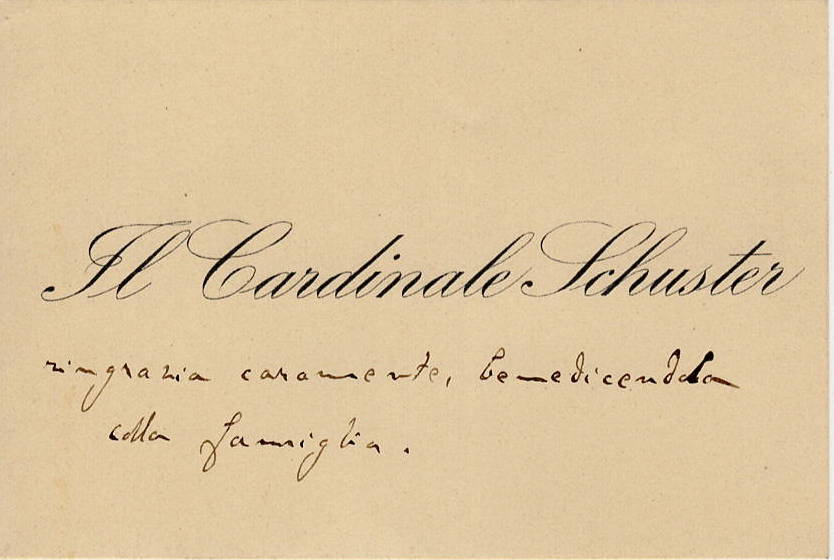 Il Cardinale Schuster
ringrazia caramente, benedicendola
colla famiglia.